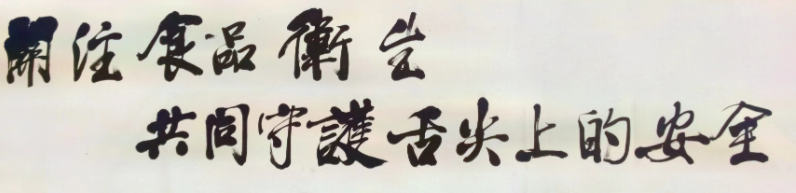 關注食品衛生
共同守護舌尖上的安全